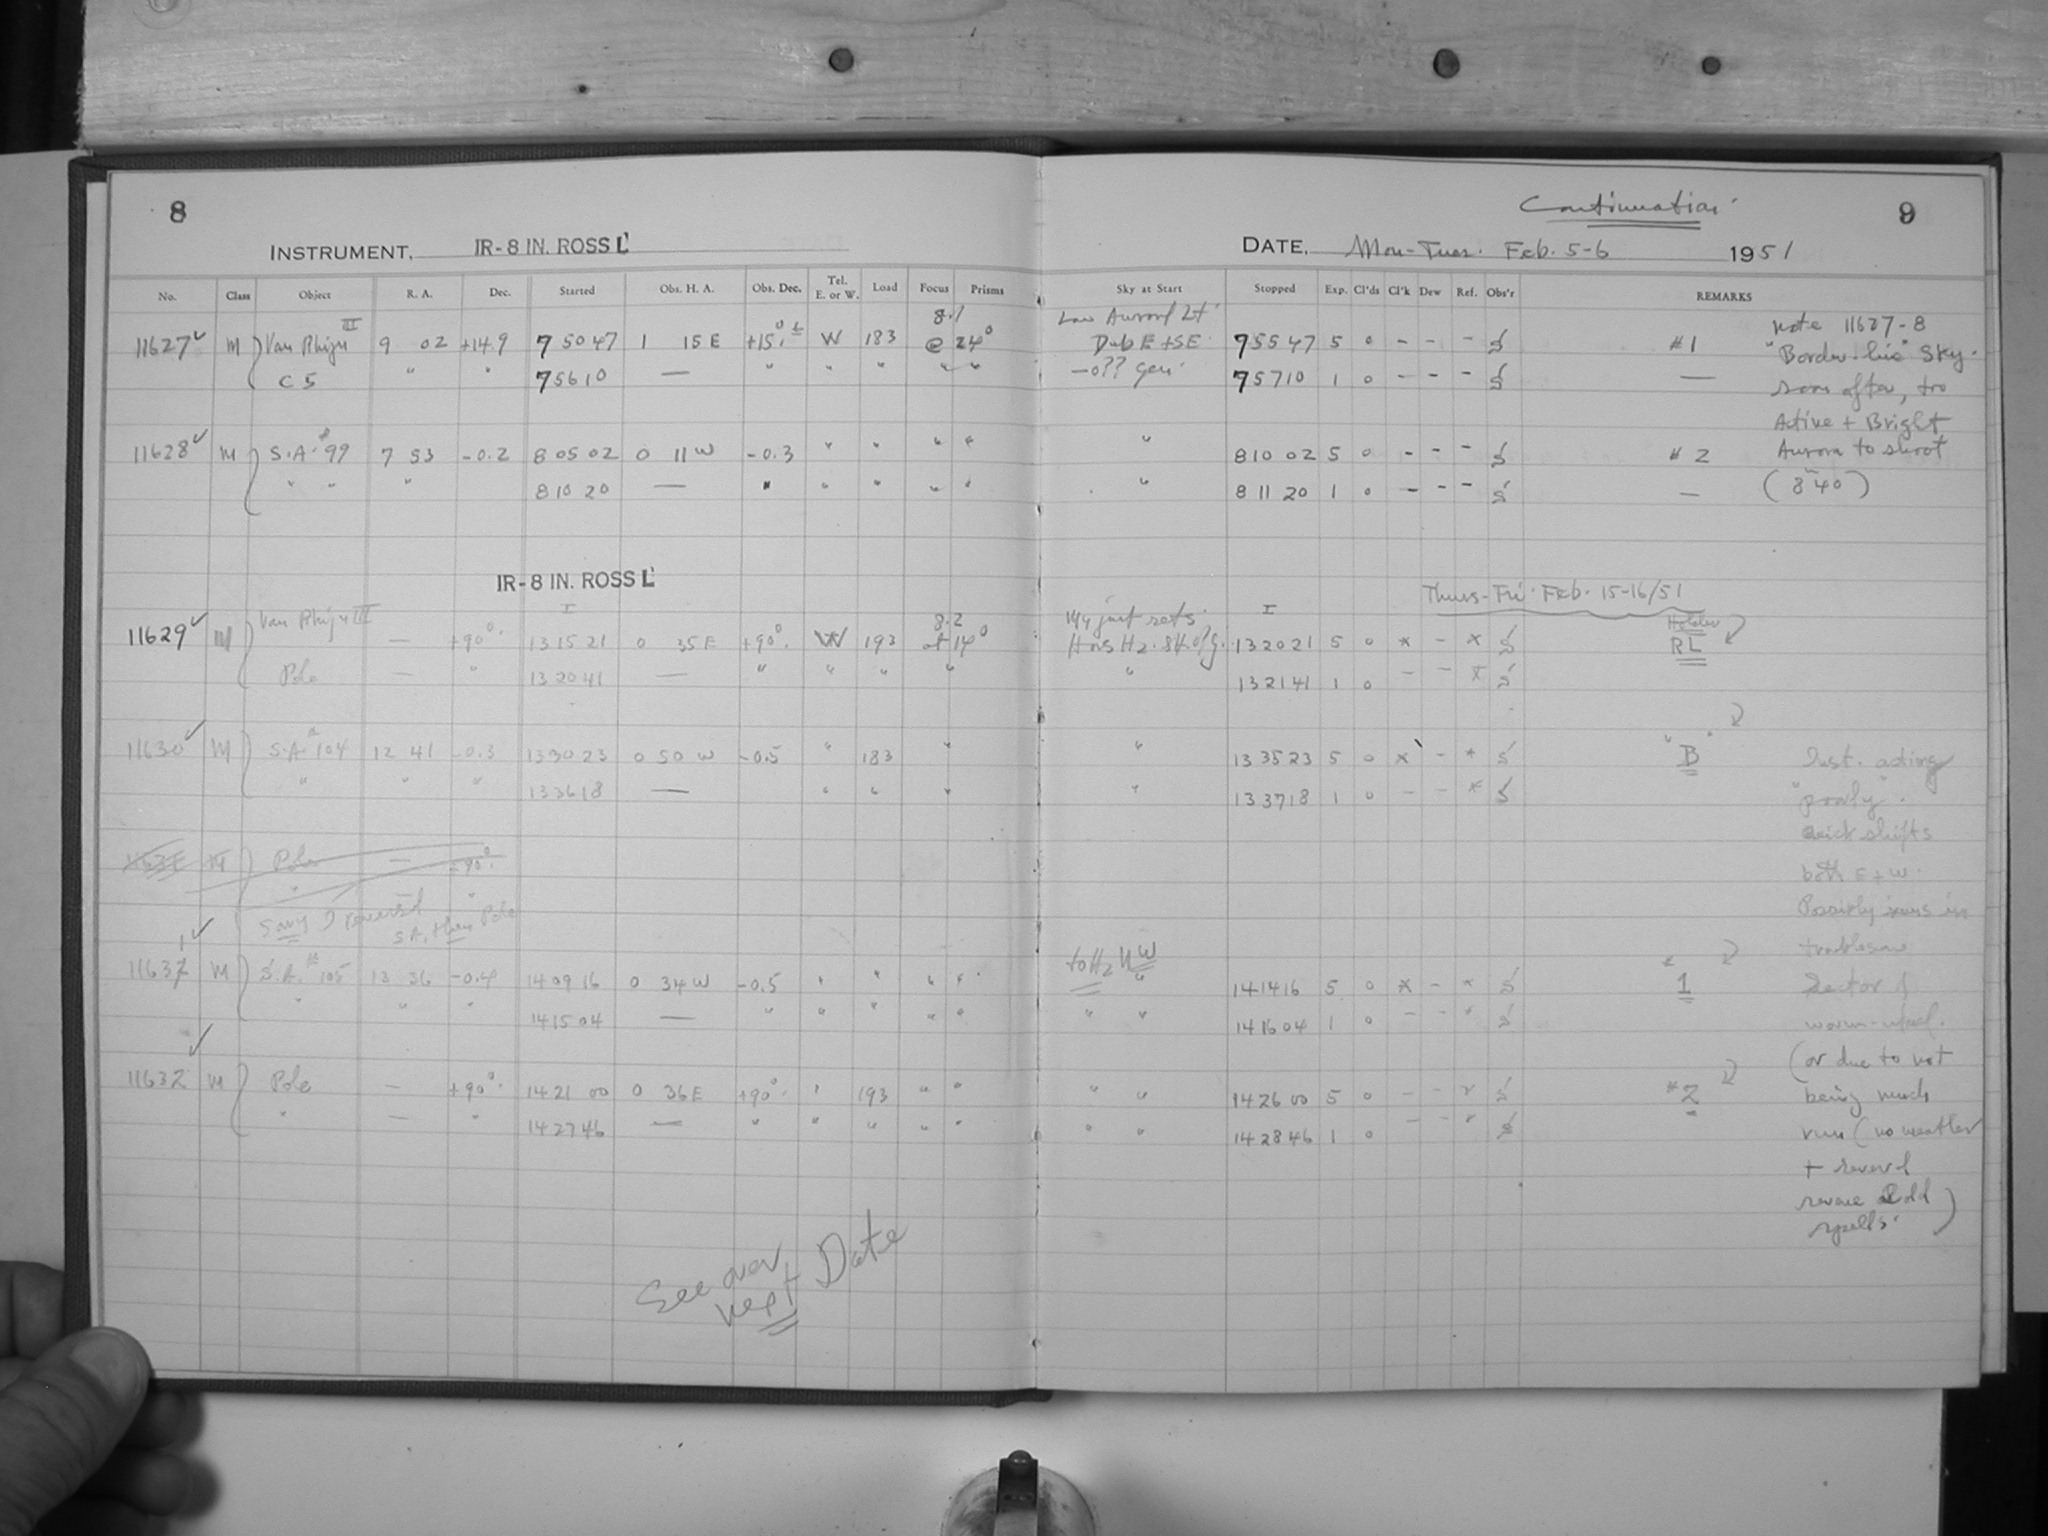 8
INSTRUMENT, IR-8 IN. ROSS L'
No. Class Object R. A. Dec. Started Obs. H. A. Obs. Dec. Tel. E. or W. Load Focus Prisms
8.1
11627 M Van Rhijn III 9 02 +14.9 7 50 47 1 15 E +15.° W 183 @ 24°
C 5 " " 7 56 10 — " " " " "
11628 M S.A. # 99 7 53 -0.2 8 05 02 0 11 W -0.3 " " " "
" " " 8 10 20 — " " " " "
IR-8 IN. ROSS L'
11629 M Van Rhijn III — +90° 13 15 21 0 35 E +90° W 193 8.2 at 14°
Pole — " 13 20 41 — " " " "
11630 M S.A. # 104 12 41 -0.3 13 30 23 0 50 W -0.5 " 183 "
" " " 13 36 18 — " " "
11631 M Pole — +90°
" "
Sorry I reversed
S A, then Pole
11631 M S.A. # 105 13 36 -0.4 14 09 16 0 34 W -0.5 " " " "
" " " 14 15 04 — " " " " "
11632 M Pole — +90° 14 21 00 0 36 E +90° " 193 " "
" — " 14 27 46 — " " " " "
See over
next Date
Continuation
9
DATE, Mon-Tues. Feb. 5-6 1951
Sky at Start Stopped Exp. Cl'ds Cl'k Dew Ref. Obs'r REMARKS
Low Auroral Lt.
Dub E + SE 7 55 47 5 0 - - - S #1
-0?? Gen. 7 57 10 1 0 - - - S —
" 8 10 02 5 0 - - - S # 2
" 8 11 20 1 0 - - - S —
note 11627-8
"Border-line" Sky.
soon after, too
Active + Bright
Aurora to shoot
(8 40)
Thurs-Fri. Feb. 15-16/51
just sets
Hz. 13 20 21 5 0 x - x S Holder RL
" 13 21 41 1 0 - - x S
" 13 35 23 5 0 x - x S "B"
" 13 37 18 1 0 - - x S
to Hz NW
" 14 14 16 5 0 x - x S 1
" " 14 16 04 1 0 - - " S
" " 14 26 00 5 0 - - " S #2
" " 14 28 46 1 0 - - " S
Inst. acting
"poorly".
quick shifts
both E + W.
Possibly in
troublesome
Sector of
worm-wheel.
(or due to not
being much
run (no weather
+ several
severe cold
spells.)